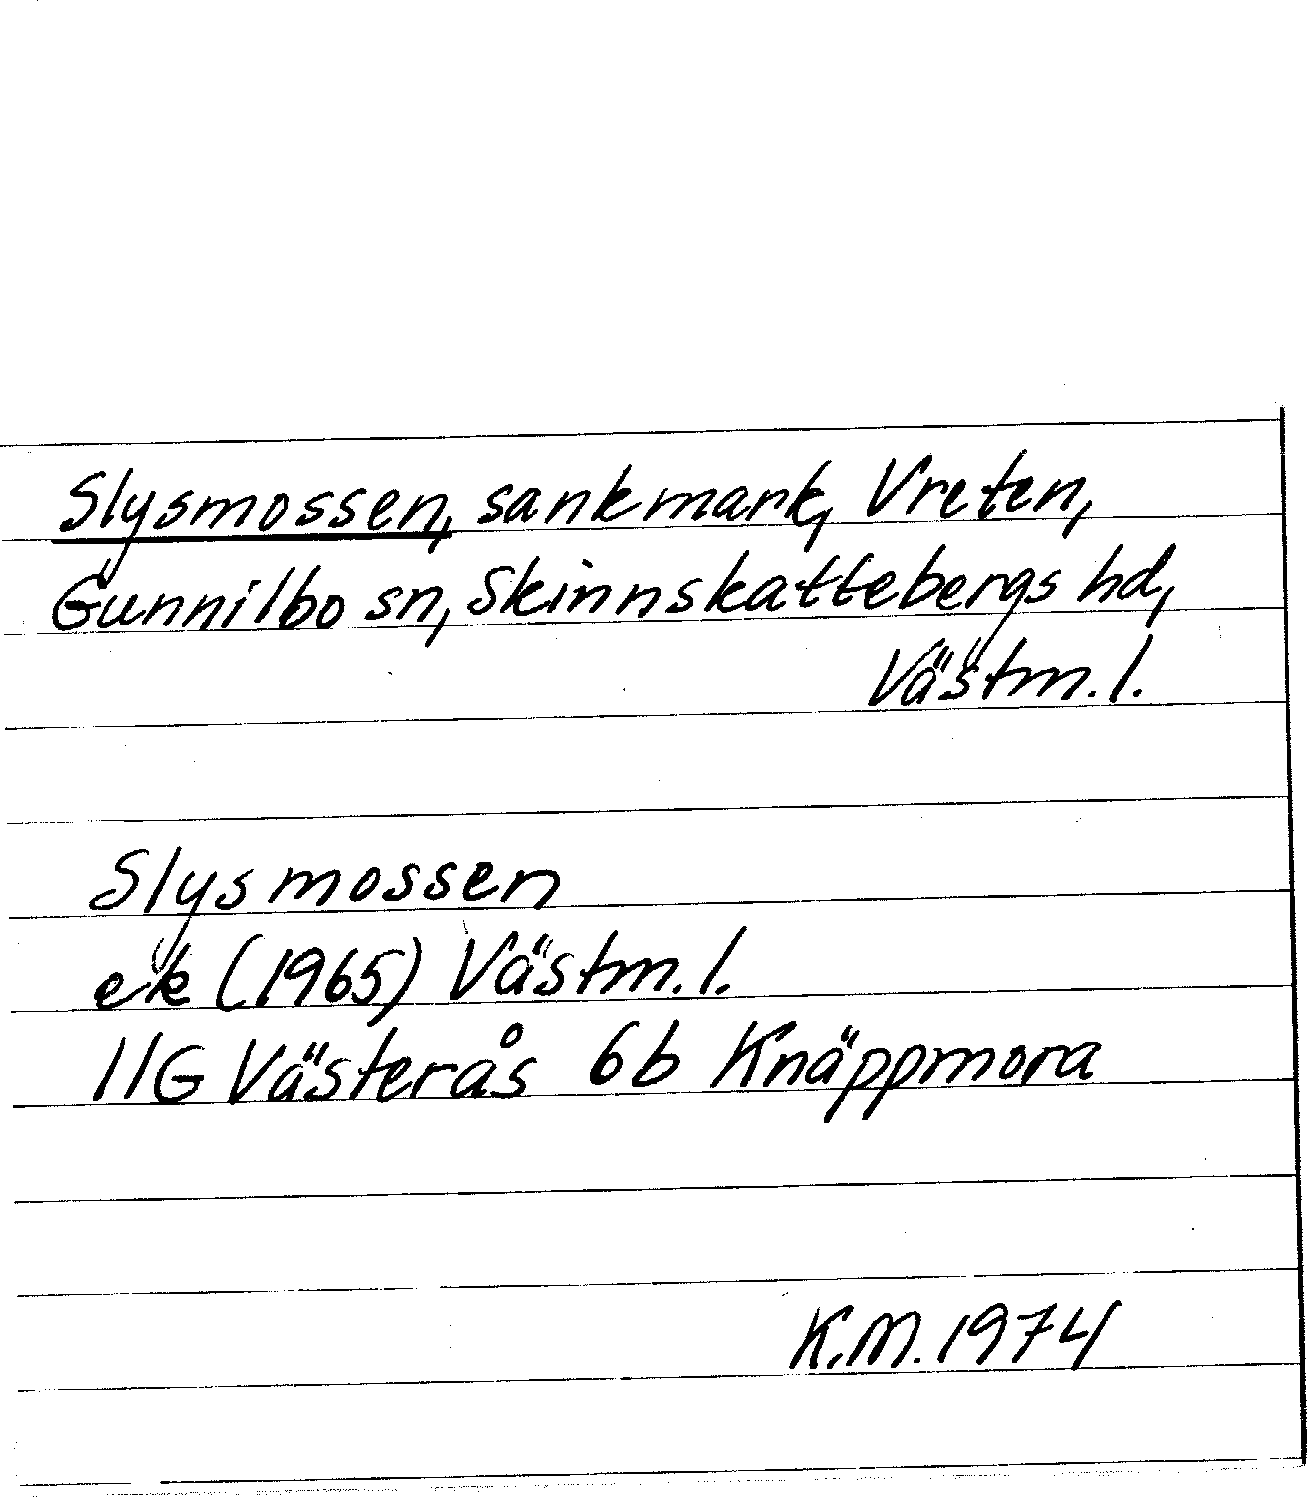 Slysmossen, sankmark, Vreten,
Gunnilbo sn, Skinnskattebergs hd,
Västm. l.
Slysmossen
ek (1965) Västm. l.
11G Västerås 6b Knäppmora
K.M. 1974